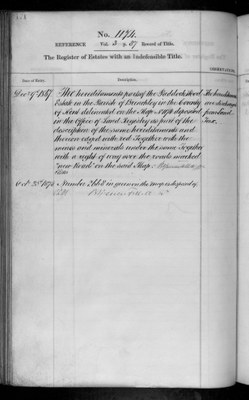 No. 1174.
REFERENCE Vol. 3 p. 57 Record of Title.
The Register of Estates with an Indefeasible Title.
Date of Entry. Description.
The hereditaments part of the Paddock Wood
Estate in the Parish of Brenchley in the County
of Kent delineated on the Map deposited
in the Office of Land Registry as part of the
description of the same hereditaments and
thereon edged with red Together with the
mines and minerals under the same Together
with a right of way over the roads marked
"new Road" on the said Map
Number 2668 is green on the map
The hereditaments
are discharged
from Land
Tax.